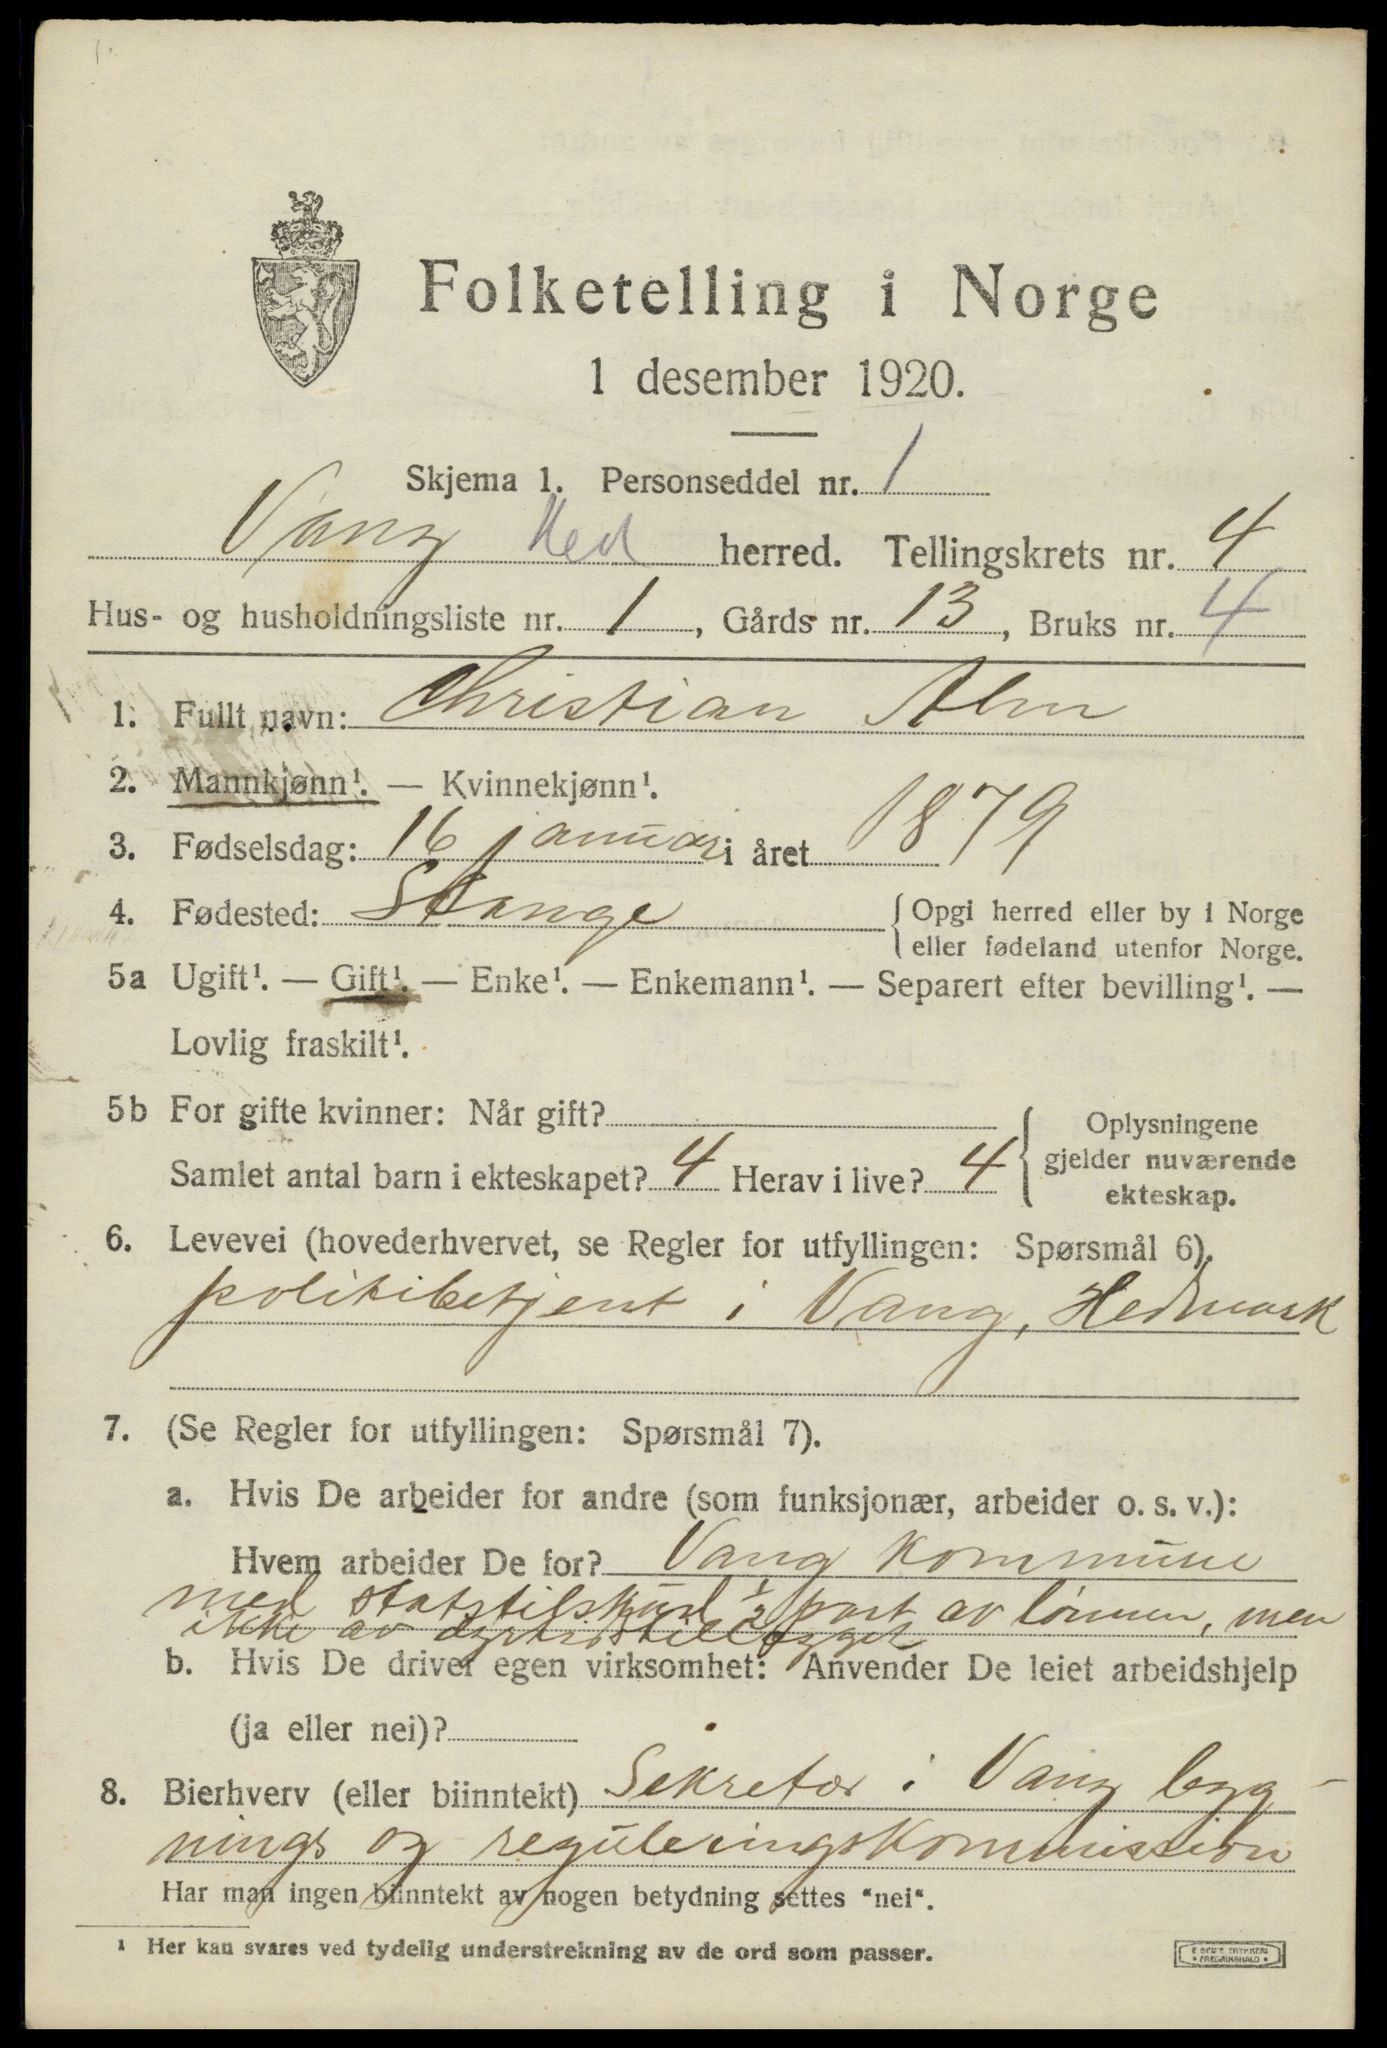 Folketelling i Norge
1 desember 1920.
Skjema 1. Personseddel nr. 1
Vang Hed herred. Tellingskrets nr. 4
Hus- og husholdningsliste nr. 1, Gårds nr. 13, Bruks nr. 4
1. Fullt navn: Christian Alm
2. Mannkjønn¹. — Kvinnekjønn¹.
3. Fødselsdag: 16 januar i året 1879
4. Fødested: Stange {Opgi herred eller by i Norge
eller fødeland utenfor Norge.
5a Ugift¹. — Gift¹. — Enke¹. — Enkemann¹. — Separert efter bevilling¹. —
Lovlig fraskilt¹.
5b For gifte kvinner: Når gift?
Samlet antal barn i ekteskapet? 4 Herav i live? 4
Oplysningene
gjelder nuværende
ekteskap.
6. Levevei (hovederhvervet, se Regler for utfyllingen: Spørsmål 6).
politibetjent i Vang, Hedmark
7. (Se Regler for utfyllingen: Spørsmål 7).
a. Hvis De arbeider for andre (som funksjonær, arbeider o. s. v.):
Hvem arbeider De for? Vang kommune
med statstilskud ½ part av lønnen, men
ikke av dyrtidstillegget
b. Hvis De driver egen virksomhet: Anvender De leiet arbeidshjelp
(ja eller nei)?
8. Bierhverv (eller biinntekt) Sekretær i Vang byg-
nings og reguleringskommission
Har man ingen biinntekt av nogen betydning settes "nei".
¹ Her kan svares ved tydelig understrekning av de ord som passer.
TRYKKERI
FREDRIKSHALD